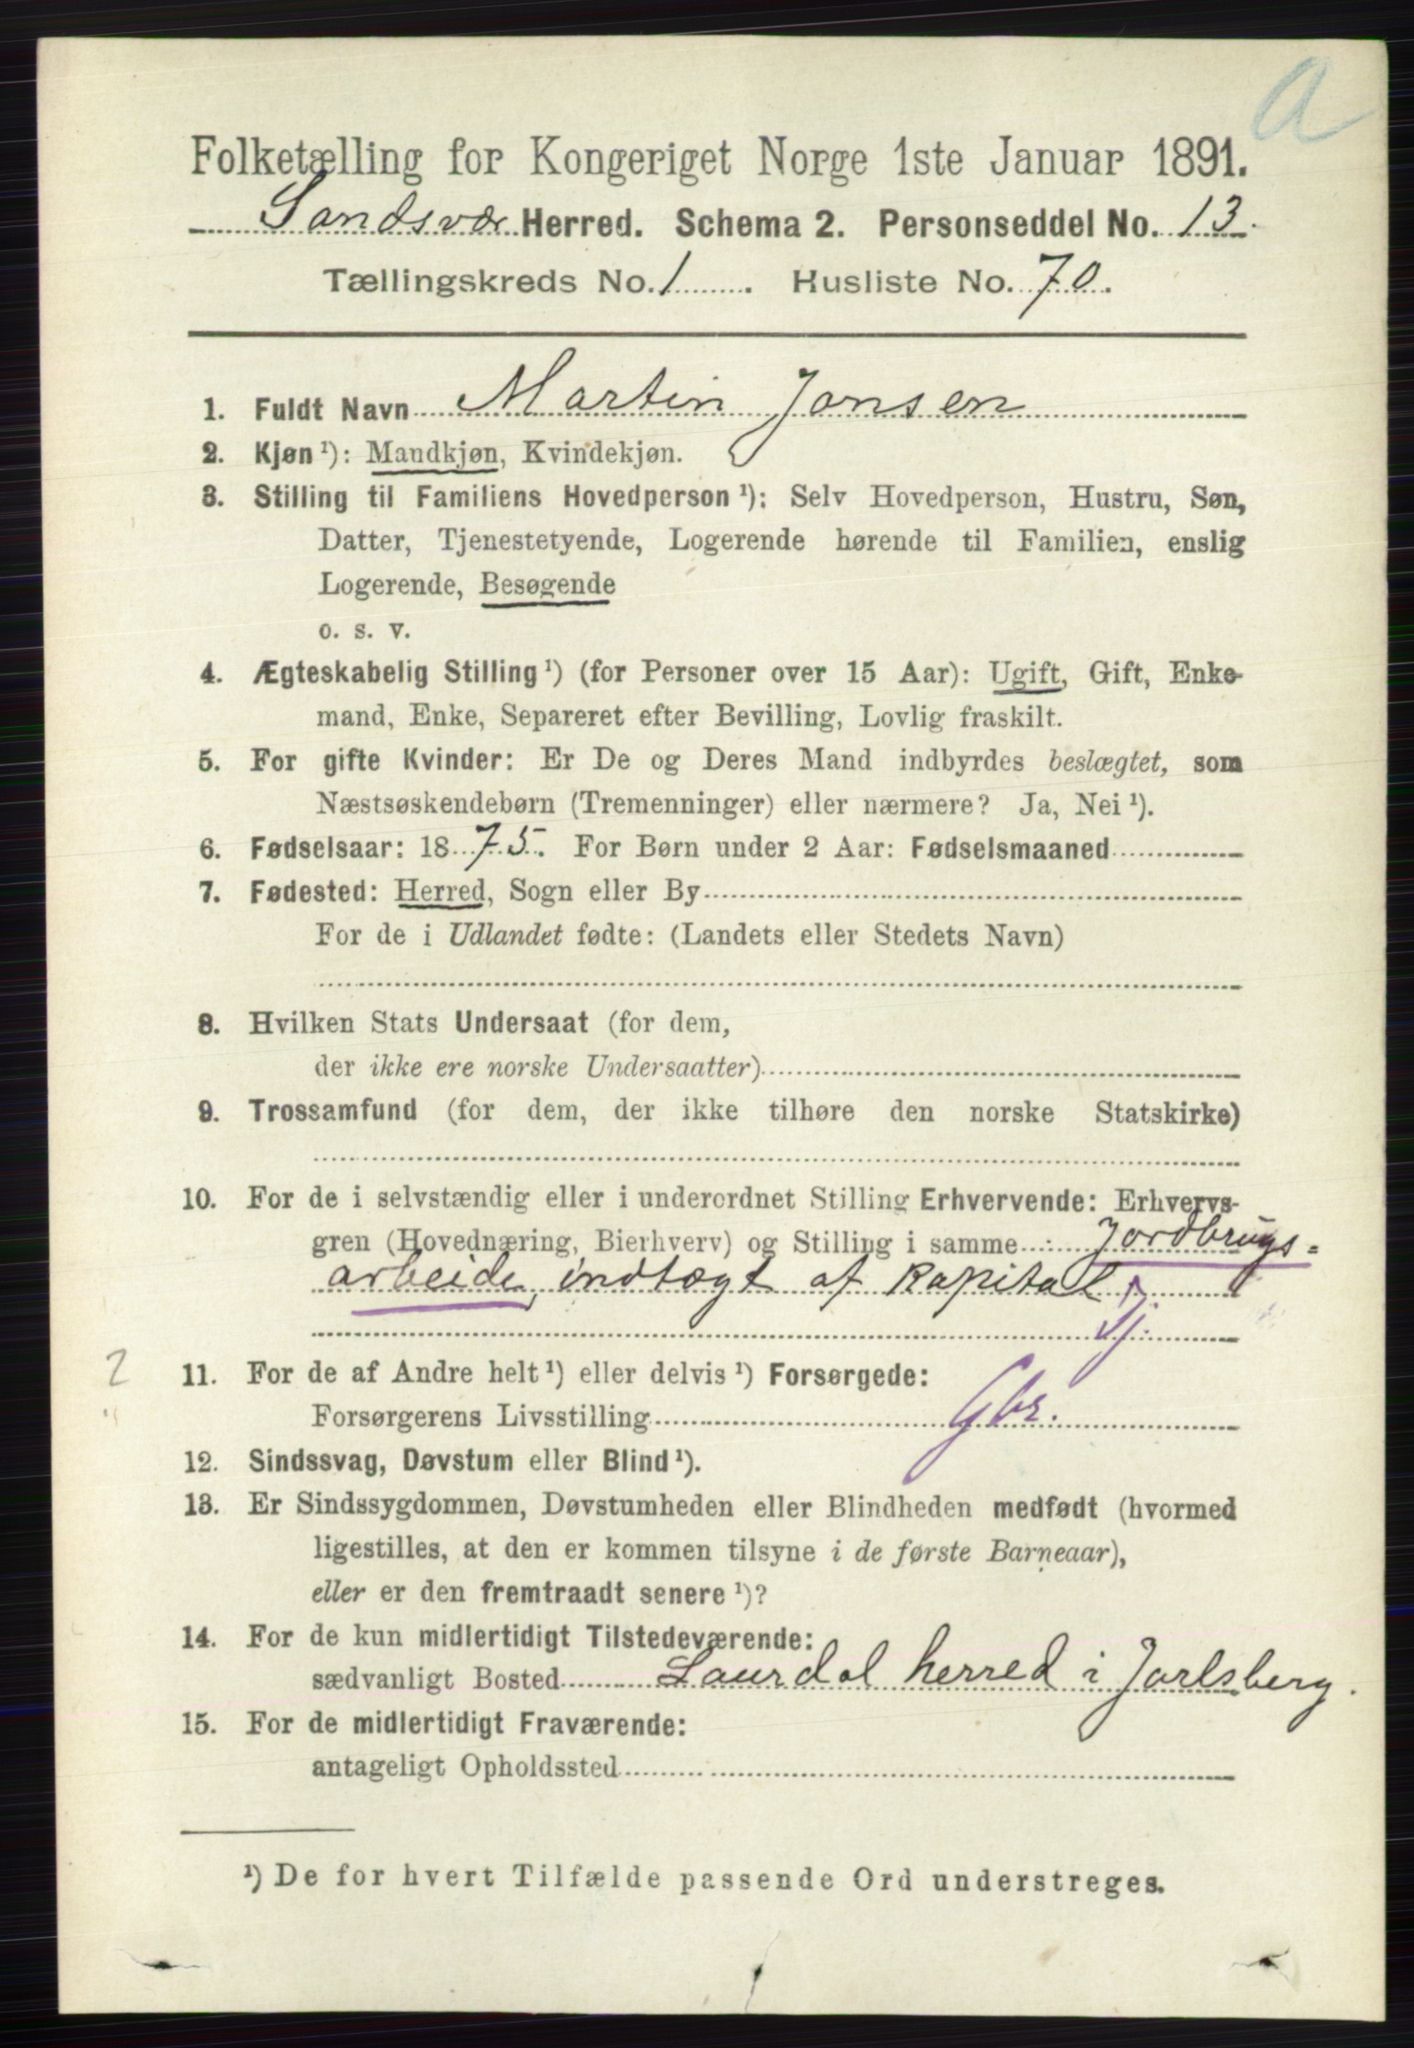 a
Folketælling for Kongeriget Norge 1ste Januar 1891.
Sandsvær Herred. Schema 2. Personseddel No. 13.
Tællingskreds No. 1. Husliste No. 70.
1. Fuldt Navn Martin Jonsen
2. Kjøn¹): Mandkjøn, Kvindekjøn.
3. Stilling til Familiens Hovedperson¹): Selv Hovedperson, Hustru, Søn,
Datter, Tjenestetyende, Logerende hørende til Familien, enslig
Logerende, Besøgende
o. s. v.
4. Ægteskabelig Stilling¹) (for Personer over 15 Aar): Ugift, Gift, Enke-
mand, Enke, Separeret efter Bevilling, Lovlig fraskilt.
5. For gifte Kvinder: Er De og Deres Mand indbyrdes beslægtet, som
Næstsøskendebørn (Tremenninger) eller nærmere? Ja, Nei¹).
6. Fødselsaar: 1875. For Børn under 2 Aar: Fødselsmaaned
7. Fødested: Herred, Sogn eller By
For de i Udlandet fødte: (Landets eller Stedets Navn)
8. Hvilken Stats Undersaat (for dem,
der ikke ere norske Undersaatter)
9. Trossamfund (for dem, der ikke tilhøre den norske Statskirke)
10. For de i selvstændig eller i underordnet Stilling Erhvervende: Erhvervs-
gren (Hovednæring, Bierhverv) og Stilling i samme : Jordbrugs=
arbeide, indtægt af Kapital
Tj.
2
11. For de af Andre helt¹) eller delvis¹) Forsørgede:
Forsørgerens Livsstilling Gbr.
12. Sindssvag, Døvstum eller Blind¹).
13. Er Sindssygdommen, Døvstumheden eller Blindheden medfødt (hvormed
ligestilles, at den er kommen tilsyne i de første Barneaar),
eller er den fremtraadt senere¹)?
14. For de kun midlertidigt Tilstedeværende:
sædvanligt Bosted Laurdal herred i Jarlsberg.
15. For de midlertidigt Fraværende:
antageligt Opholdssted
¹) De for hvert Tilfælde passende Ord understreges.